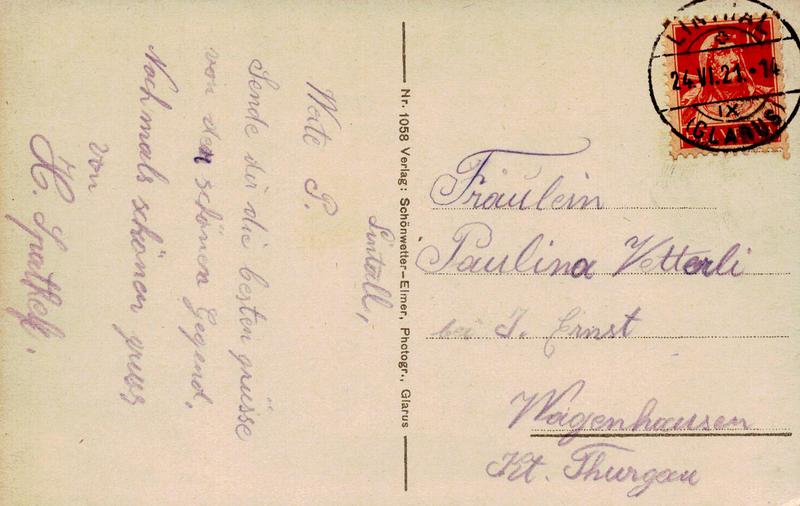 Lintall,
Werte P.
Sende dir die besten grüsse
von den schönen Gegend,
Nochmals schönen gruss
von
Nr. 1058 Verlag: Schönwetter-Elmer, Photogr., Glarus
LINTHAL
24.VI.21.-14
IX
(GLARUS)
Fräulein
Paulina Vetterli
bei J. Ernst
Wagenhausen
Kt. Thurgau